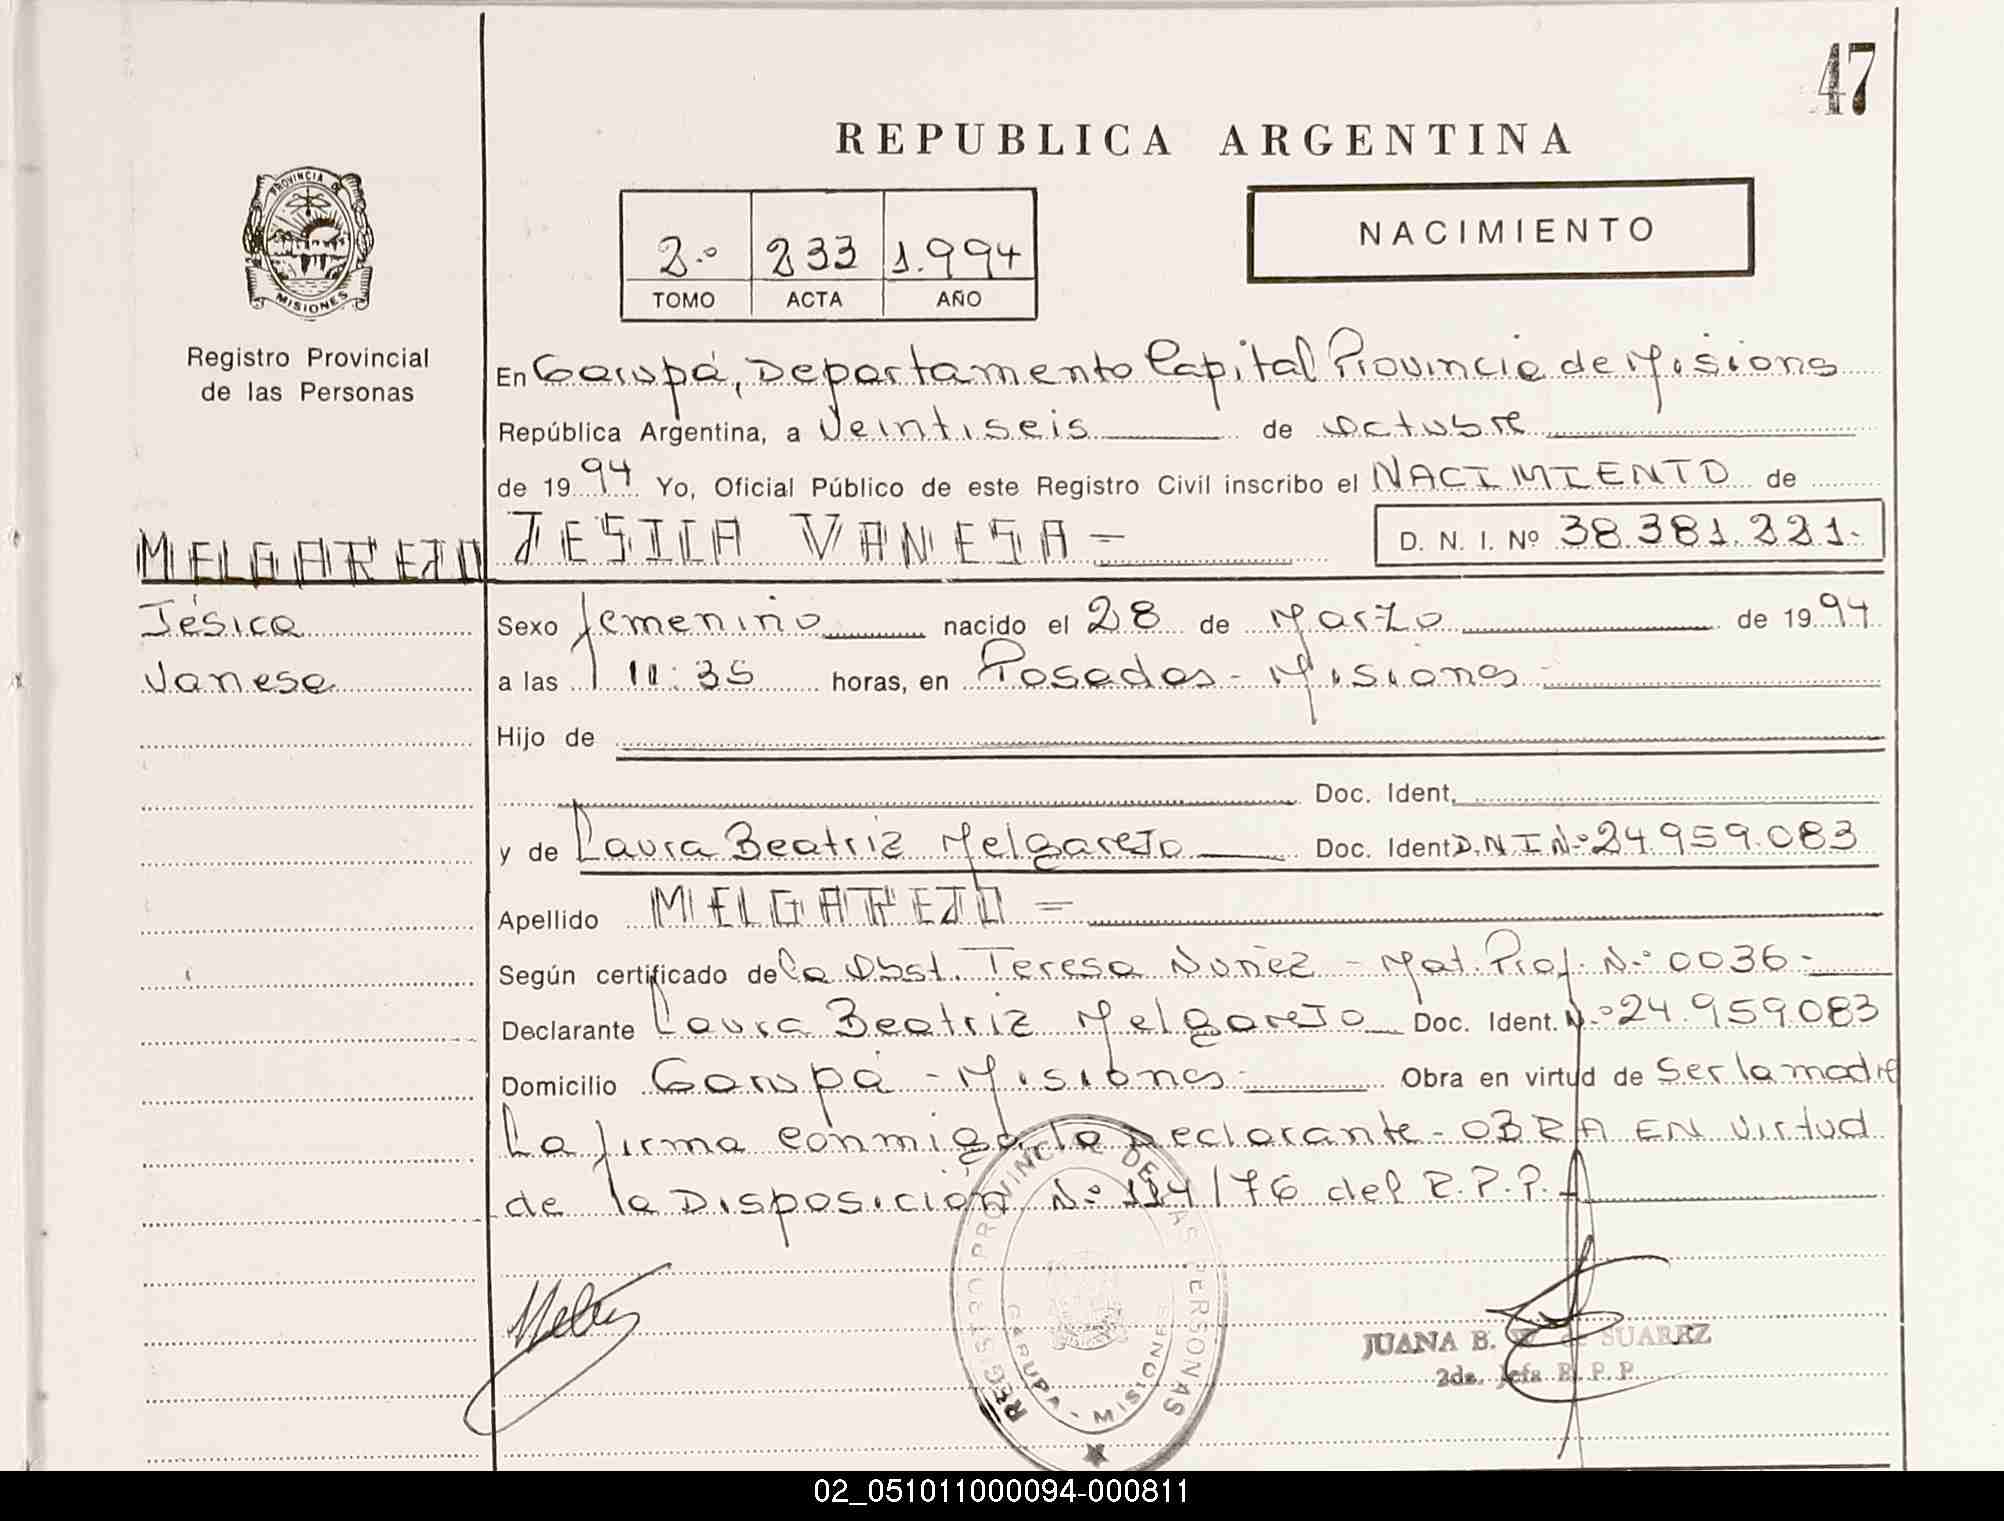 47
REPUBLICA ARGENTINA
PROVINCIA DE
MISIONES
Registro Provincial
de las Personas
2.º 233 1.994
TOMO ACTA AÑO
NACIMIENTO
En Garupá, Departamento Capital Provincia de Misiones
República Argentina, a Veintiseis de octubre
de 1994 Yo, Oficial Público de este Registro Civil inscribo el NACIMIENTO de
MELGAREJO JESICA VANESA =
D. N. I. Nº 38.381.221.-
Jésica
Vanesa
Sexo femenino nacido el 28 de Marzo de 1994
a las 11:35 horas, en Posadas - Misiones
Hijo de
Doc. Ident.
y de Laura Beatriz Melgarejo Doc. Ident D.N.I.N.º 24.959.083
Apellido MELGAREJO =
Según certificado de la Obst. Teresa Nuñez - Mat. Prof. N.º 0036.-
Declarante Laura Beatriz Melgarejo Doc. Ident. N.º 24.959.083
Domicilio Garupá - Misiones Obra en virtud de Ser la madre
La firma conmigo la Declarante - OBRA EN virtud
de la Disposición N.º 114/76 del R.P.P.
REGISTRO PROVINCIAL DE LAS PERSONAS
GARUPA - MISIONES
JUANA B. de SUAREZ
2da. Jefa R. P. P.
02_051011000094-000811